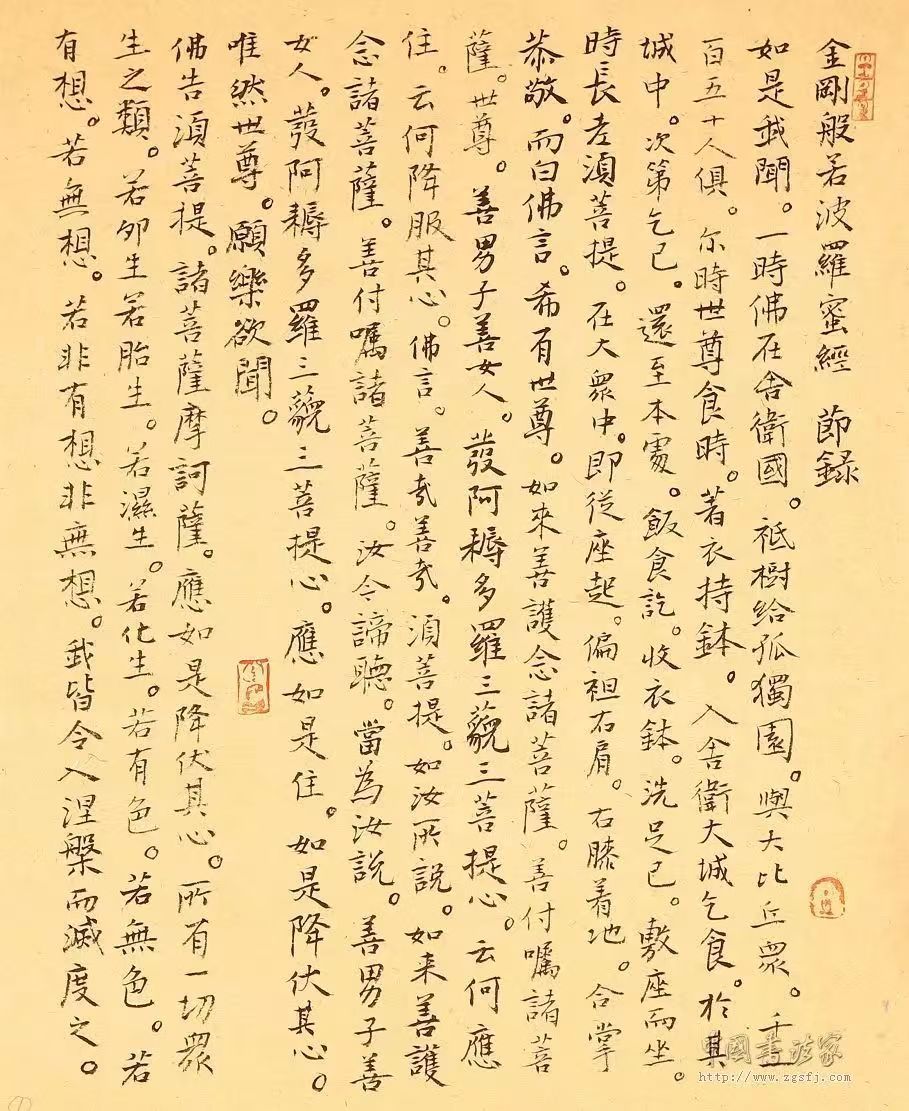 金剛般若波羅蜜經　節録
如是我聞。一時佛在舍衛國。祗樹給孤獨園。與大比丘衆。千二
百五十人俱。尔時世尊食時。著衣持鉢。入舍衛大城乞食。於其
城中。次第乞已。還至本處。飯食訖。收衣鉢。洗足已。敷座而坐。
時長老須菩提。在大衆中。即從座起。偏袒右肩。右膝着地。合掌
恭敬。而白佛言。希有世尊。如來善護念諸菩薩。善付囑諸菩
薩。世尊。善男子善女人。發阿耨多羅三藐三菩提心。云何應
住。云何降服其心。佛言。善哉善哉。須菩提。如汝所説。如来善護
念諸菩薩。善付囑諸菩薩。汝今諦聽。當為汝說。善男子善
女人。發阿耨多羅三藐三菩提心。應如是住。如是降伏其心。
唯然世尊。願樂欲聞。
佛告須菩提。諸菩薩摩訶薩。應如是降伏其心。所有一切眾
生之類。若卵生若胎生。若濕生。若化生。若有色。若無色。若
有想。若無想。若非有想非無想。我皆令入涅槃而滅度之。
中國書法家
http://www.zgsfj.com